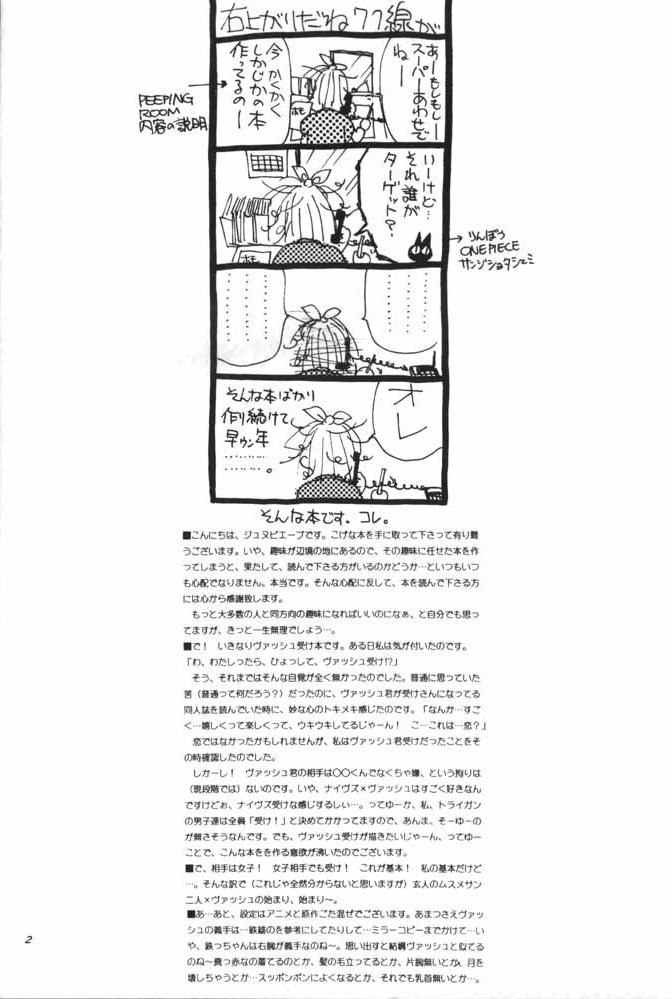 右上がりだね77線が
あーもしもしー
スーパーあわせで
ねー
今 かくかく
しかじかの本
作ってるのー
PEEPING
ROOM
内容の説明
ホモ
いーけど…
それ誰が
ターゲット?
りんぼう
ONE PIECE
ホモ
…………
…………
…………
…………
オレ
そんな本ばかり
作り続けて
早ウン年
………
………。
そんな本です. コレ。
■こんにちは、ジュヌビエーブです。こげな本を手に取って下さって有り難
うございます。いや、趣味が辺境の地にあるので、その趣味に任せた本を作
ってしまうと、果たして、読んで下さる方がいるのかどうか…といつもいつ
も心配でなりません。本当です。そんな心配に反して、本を読んで下さる方
には心から感謝致します。
もっと大多数の人と同方向の趣味になればいいのになぁ、と自分でも思っ
てますが、きっと一生無理でしょう…。
■で! いきなりヴァッシュ受け本です。ある日私は気が付いたのです。
「わ、わたしったら、ひょっして、ヴァッシュ受け!?」
そう、それまではそんな自覚が全く無かったのでした。普通に思っていた
筈(普通って何だろう?)だったのに、ヴァッシュ君が受けさんになってる
同人誌を読んでいた時に、妙な心のトキメキ感じたのです。「なんか…すご
く…嬉しくって楽しくって、ウキウキしてるじゃーん! こ…これは…恋?」
恋ではなかったかもしれませんが、私はヴァッシュ君受けだったことをそ
の時確認したのでした。
しかーし! ヴァッシュ君の相手は〇〇くんでなくちゃ嫌、という拘りは
(現段階では)ないのです。いや、ナイヴズ×ヴァッシュはすごく好きなん
ですけどぉ、ナイヴズ受けな感じするしぃ…。ってゆーか、私、トライガン
の男子達は全員「受け!」と決めてかかってますので、あんま、そーゆーの
が無さそうなんです。でも、ヴァッシュ受けが描きたいじゃーん、ってゆー
ことで、こんな本をを作る意欲が沸いたのでございます。
■で、相手は女子! 女子相手でも受け! これが基本! 私の基本だけど
…。そんな訳で(これじゃ全然分からないと思いますが)玄人のムスメサン
二人×ヴァッシュの始まり、始まり〜。
■あ…あと、設定はアニメと原作ごた混ぜでございます。あまつさえヴァッ
シュの義手は…鉄雄のを参考にしてたりして…ミラーコピーまでかけて…い
や、鉄っちゃんは右腕が義手なのね〜。思い出すと結構ヴァッシュと似てる
のね〜真っ赤なの着てるのとか、髪の毛立ってるとか、片腕無いとか、月を
壊しちゃうとか…スッポンポンによくなるとか、それでも乳首無いとか…。
2